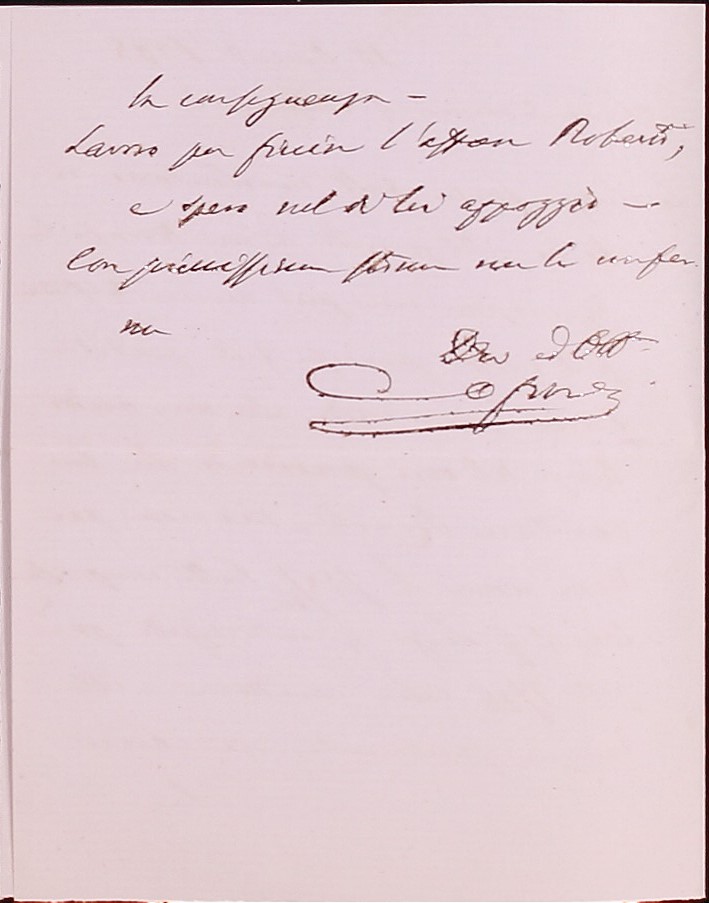 in conseguenza –
Lavoro per finir l'affare Roberti,
e spero nel di lei appoggio –
Con pienissima stima me le confer
mo
Dev ed Obb